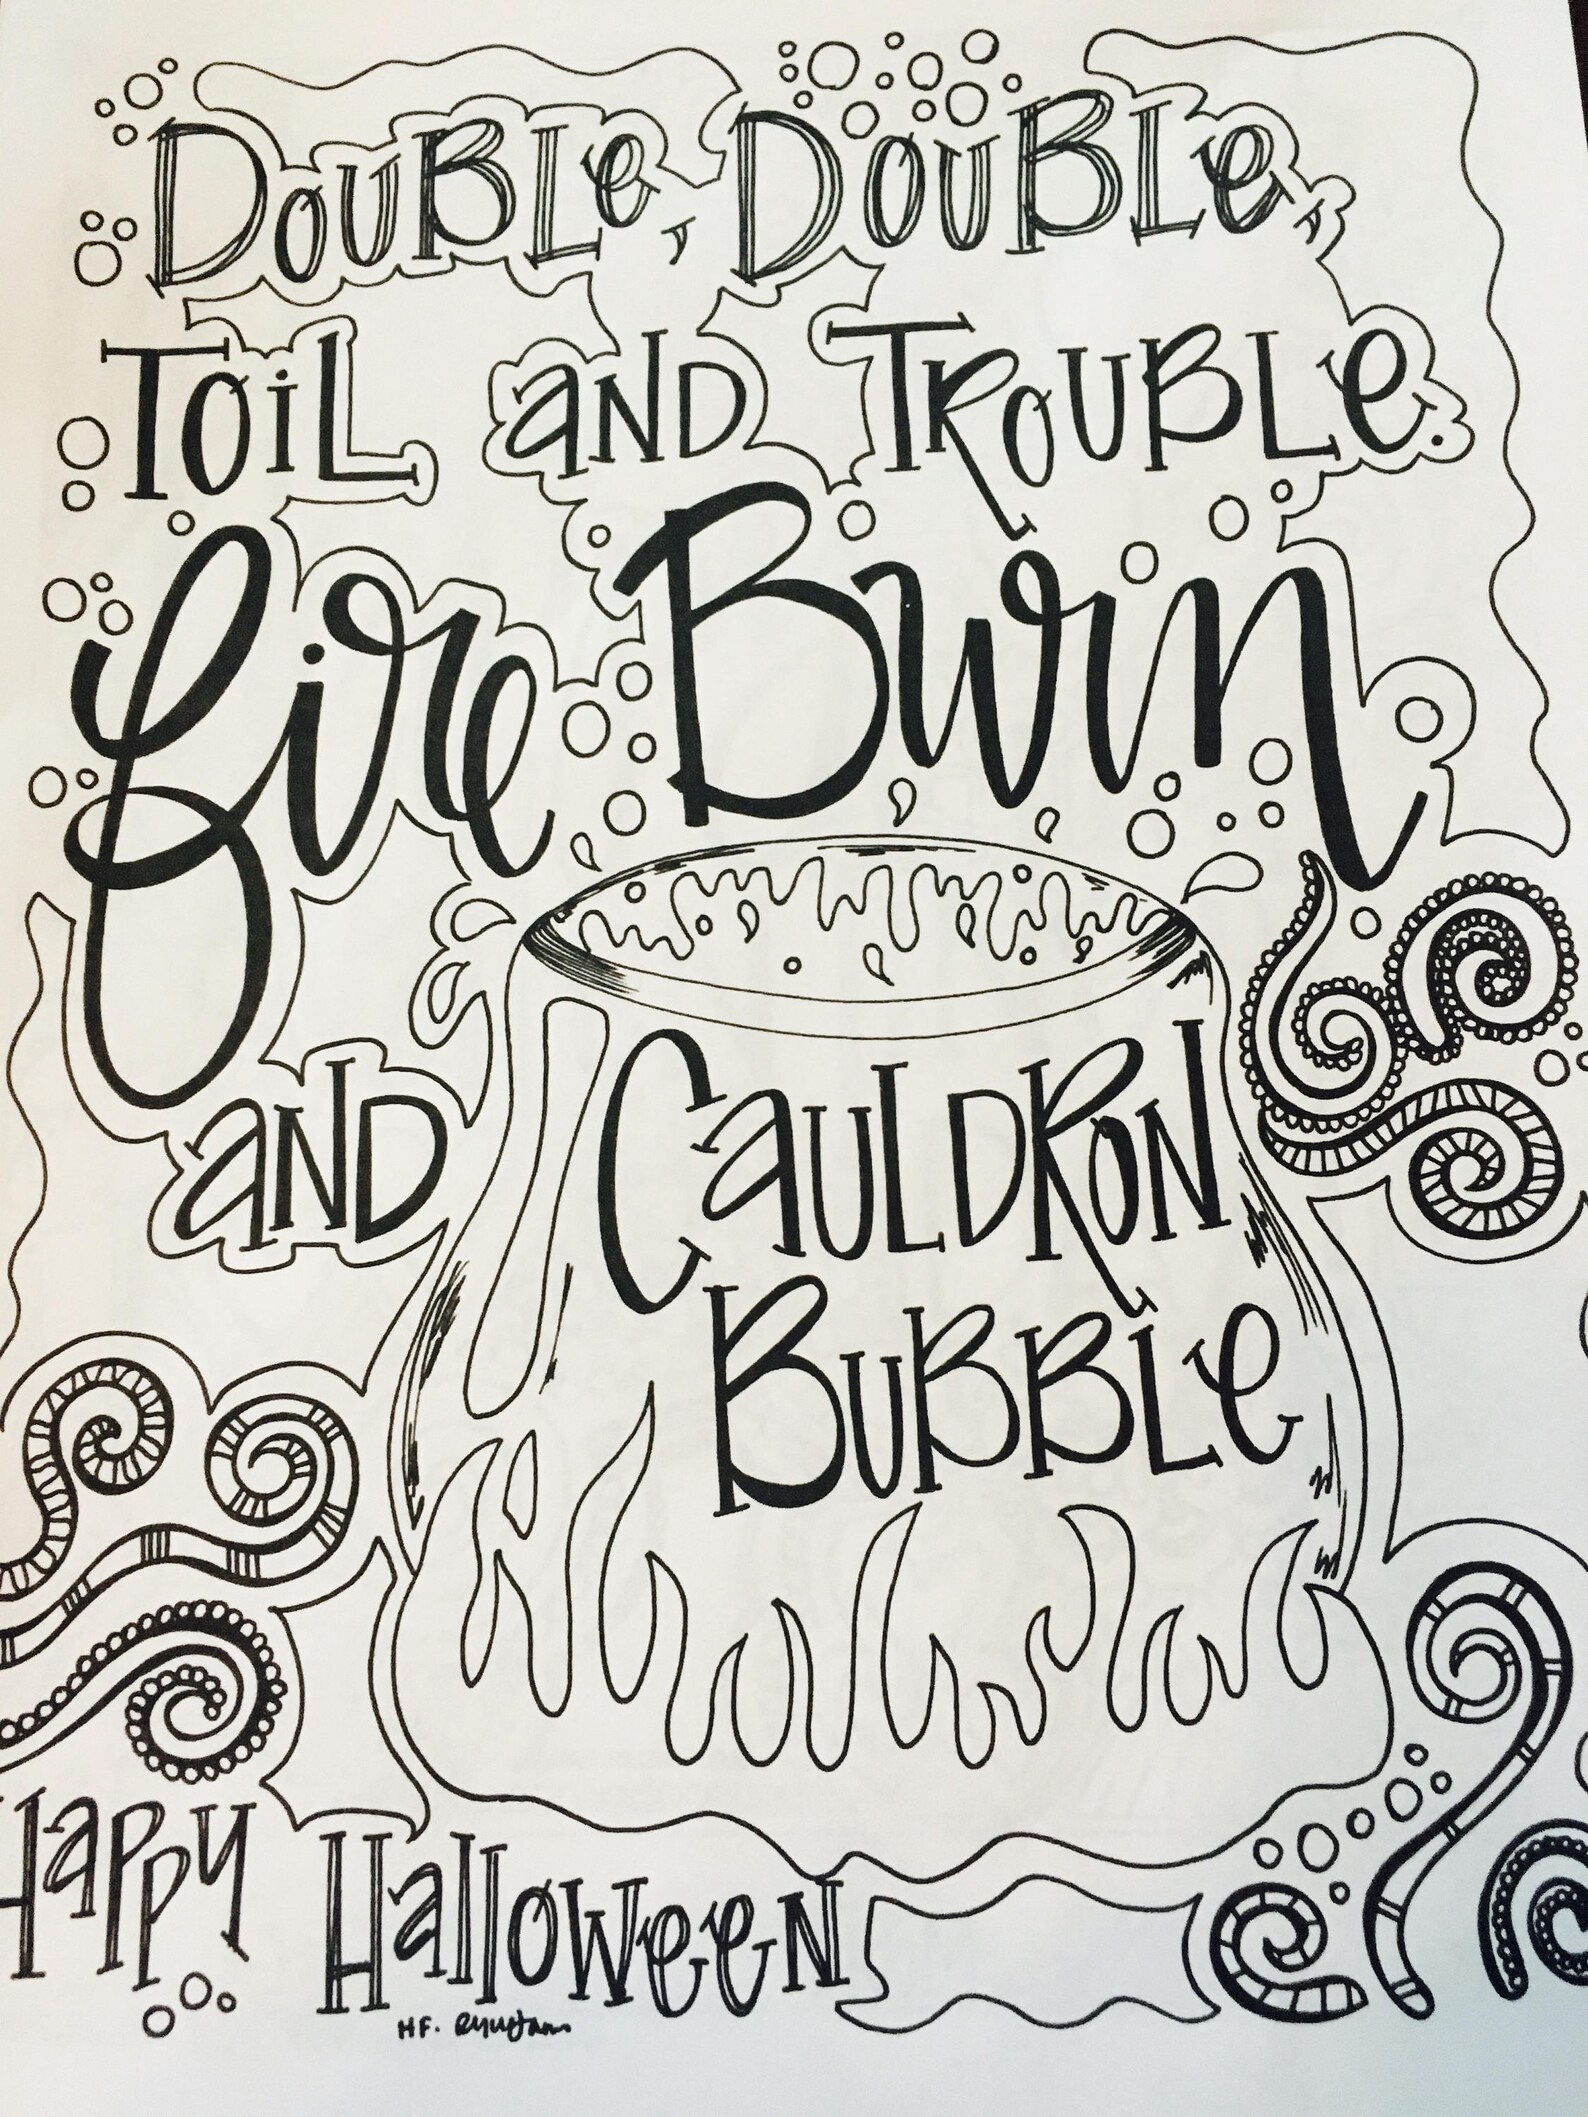 Double, Double,
Toil and Trouble.
fire Burn
and Cauldron
Bubble
Happy Halloween
HF.